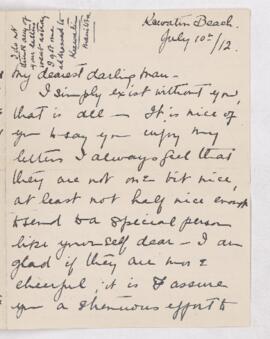 Kewatin Beach.
July 10th/12.
I do not
think any of
your letters
went astray
I got one
addressed to
Kewatin
Manitoba
My dearest darling Man -
I simply exist without you,
that is all - It is nice of
you to say you enjoy my
letters I always feel that
they are not one bit nice,
at least not half nice enough
to send to a special person
like yourself dear - I am
glad if they are nice &
cheerful, it is I assure
you a strenuous effort to